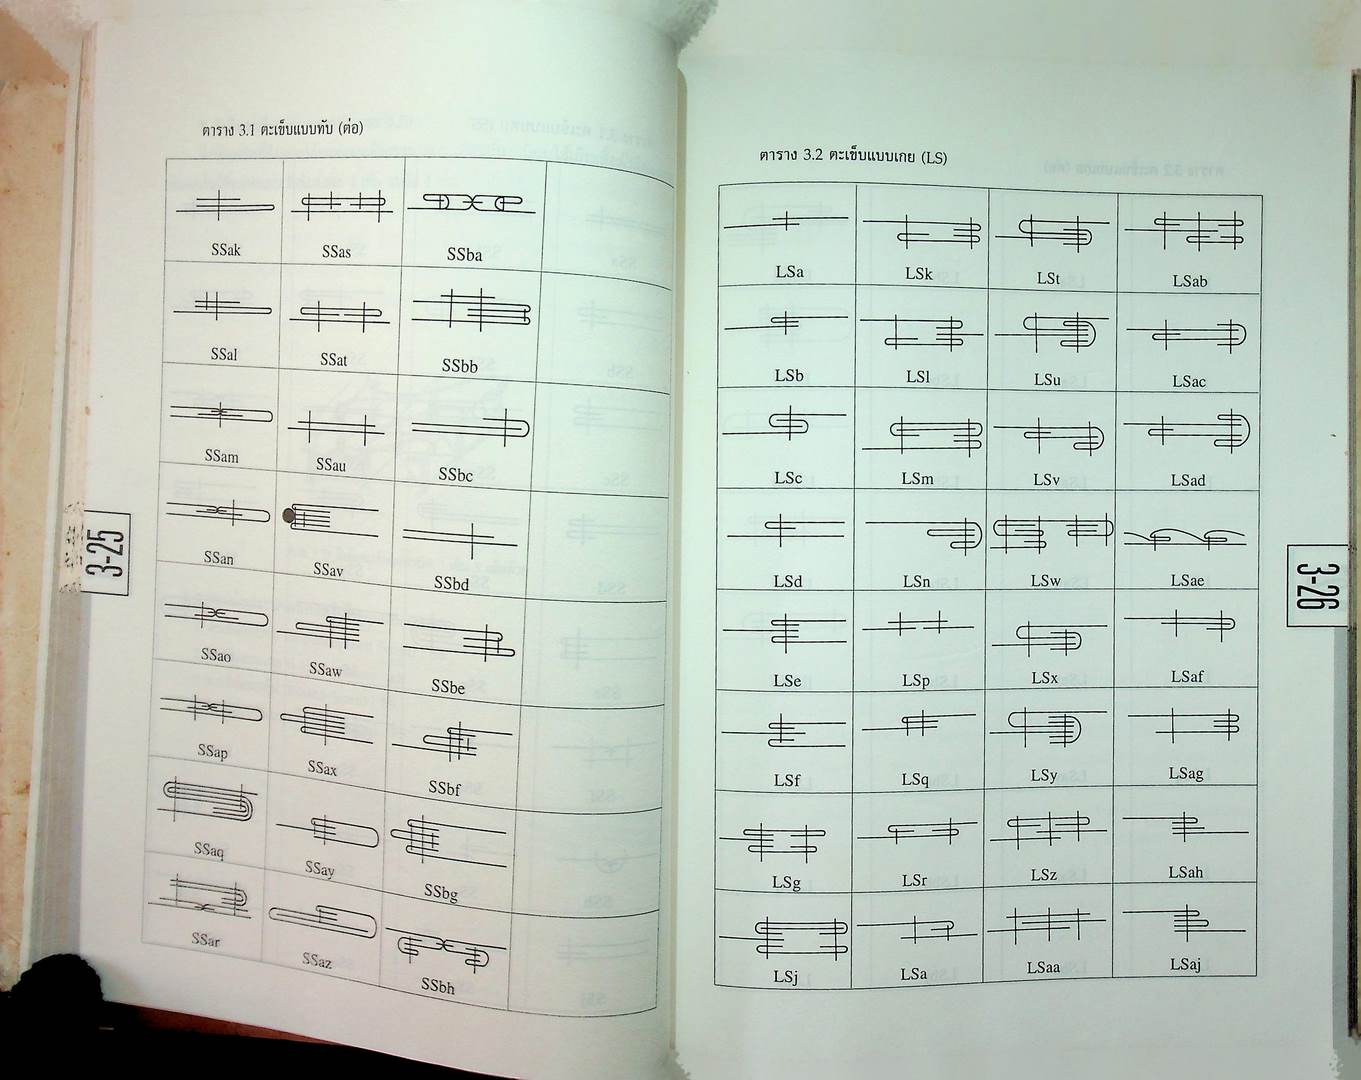 ตาราง 3.1 ตะเข็บแบบทับ (ต่อ)
SSak SSas SSba
SSal SSat SSbb
SSam SSau SSbc
SSan SSav SSbd
SSao SSaw SSbe
SSap SSax SSbf
SSaq SSay SSbg
SSar SSaz SSbh
3-25
ตาราง 3.2 ตะเข็บแบบเกย (LS)
LSa LSk LSt LSab
LSb LSl LSu LSac
LSc LSm LSv LSad
LSd LSn LSw LSae
LSe LSp LSx LSaf
LSf LSq LSy LSag
LSg LSr LSz LSah
LSj LSa LSaa LSaj
3-26